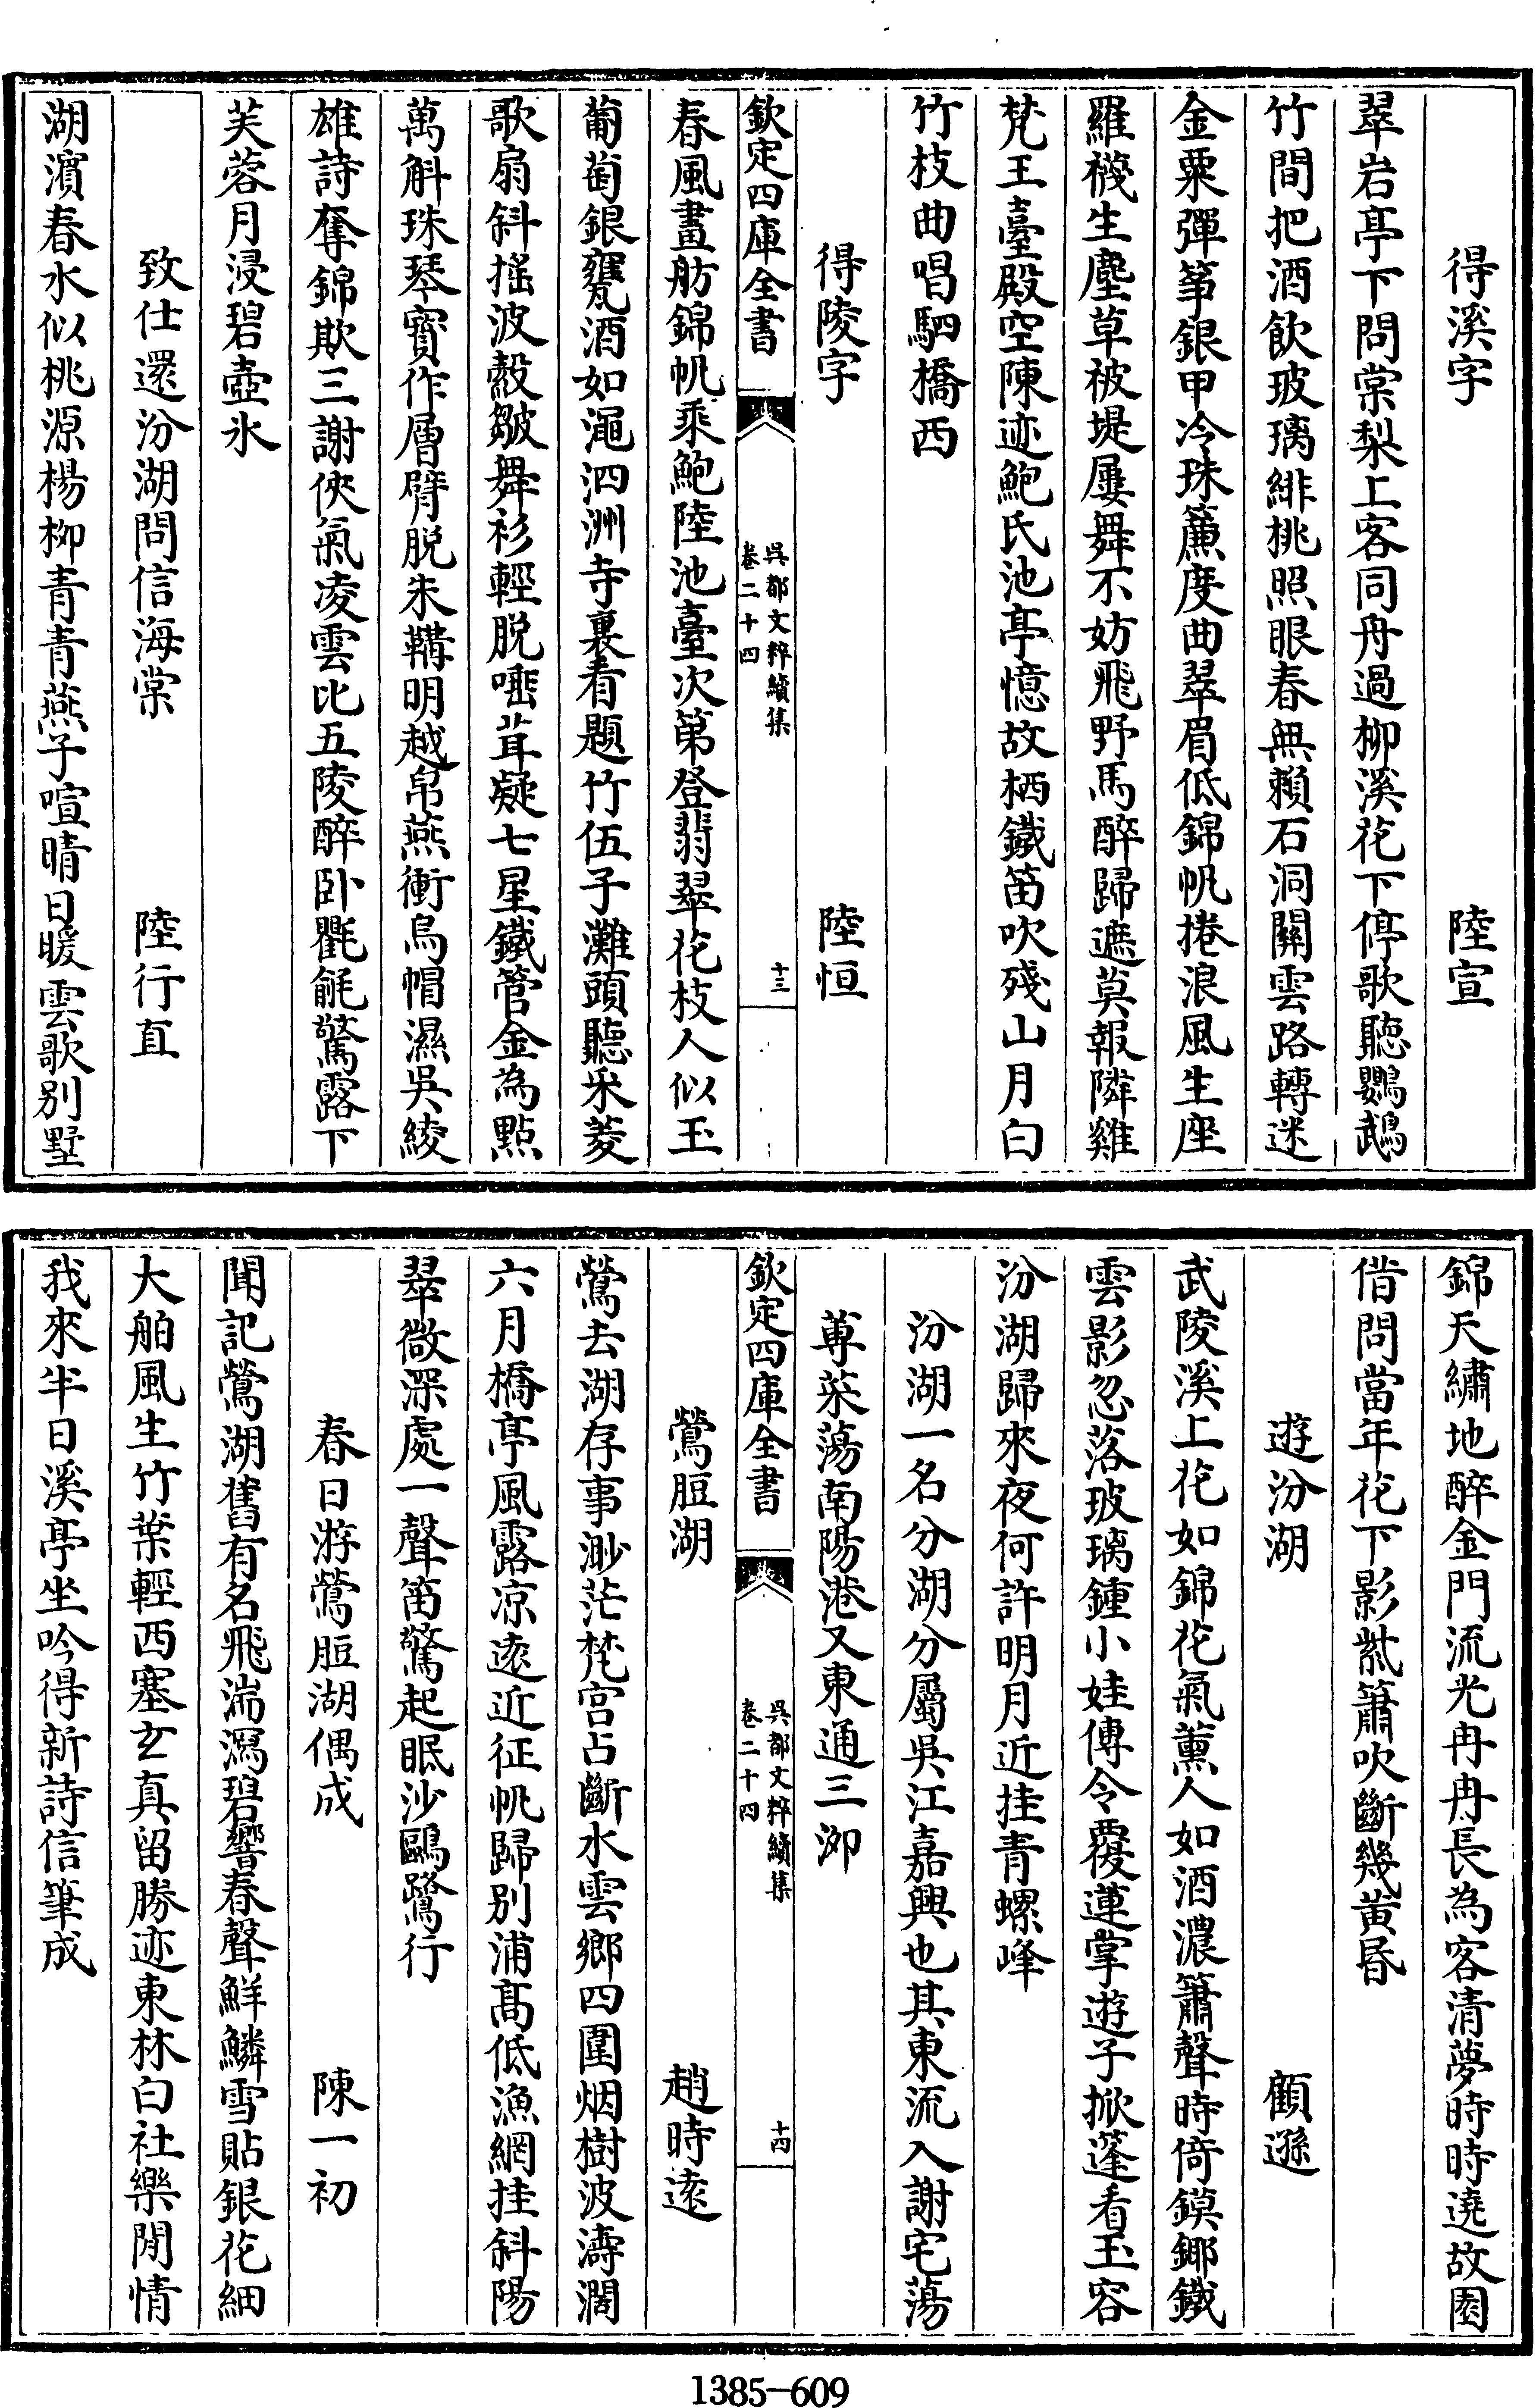 得溪字　陸宣
翠岩亭下問棠梨上客同舟過柳溪花下停歌聽鸚鵡
竹間把酒飲玻璃緋桃照眼春無賴石洞關雲路轉迷
金粟彈箏銀甲冷珠簾度曲翠眉低錦帆捲浪風生座
羅襪生塵草被堤屢舞不妨飛野馬醉歸遮莫報隣雞
梵王臺殿空陳迹鮑氏池亭憶故栖鐵笛吹殘山月白
竹枝曲唱駟橋西
得陵字　陸恒
欽定四庫全書
吳都文粹續集
卷二十四
十三
春風畫舫錦帆乘鮑陸池臺次第登翡翠花枝人似玉
葡萄銀甕酒如澠泗洲寺裏看題竹伍子灘頭聽采菱
歌扇斜揺波縠皺舞衫輕脱唾茸凝七星鐵管金為點
萬斛珠琴寳作層臂脱朱鞲明越帛燕衝烏帽濕吳綾
雄詩奪錦欺三謝俠氣凌雲比五陵醉卧氍毹驚露下
芙蓉月浸碧壺氷
致仕還汾湖問信海棠　陸行直
湖濵春水似桃源楊柳青青燕子喧晴日暖雲歌别墅
錦天繡地醉金門流光冉冉長為客清夢時時遶故園
借問當年花下影紫簫吹斷幾黄昏
遊汾湖　顧遜
武陵溪上花如錦花氣薰人如酒濃簫聲時倚鏌鋣鐵
雲影忽落玻璃鍾小娃傳令覆蓮掌遊子掀篷看玉容
汾湖歸來夜何許明月近挂青螺峰
汾湖一名分湖分屬吳江嘉興也其東流入謝宅蕩
蓴菜蕩南陽港又東通三泖
欽定四庫全書
吳都文粹續集
卷二十四
十四
鶯脰湖　趙時逺
鶯去湖存事渺茫梵宫占斷水雲鄉四圍烟樹波濤濶
六月橋亭風露凉逺近征帆歸别浦髙低漁網挂斜陽
翠微深處一聲笛驚起眠沙鷗鷺行
春日游鶯脰湖偶成　陳一初
聞記鶯湖舊有名飛湍瀉碧響春聲鮮鱗雪貼銀花細
大舶風生竹葉輕西塞玄真留勝迹東林白社樂閒情
我來半日溪亭坐吟得新詩信筆成
1385-609